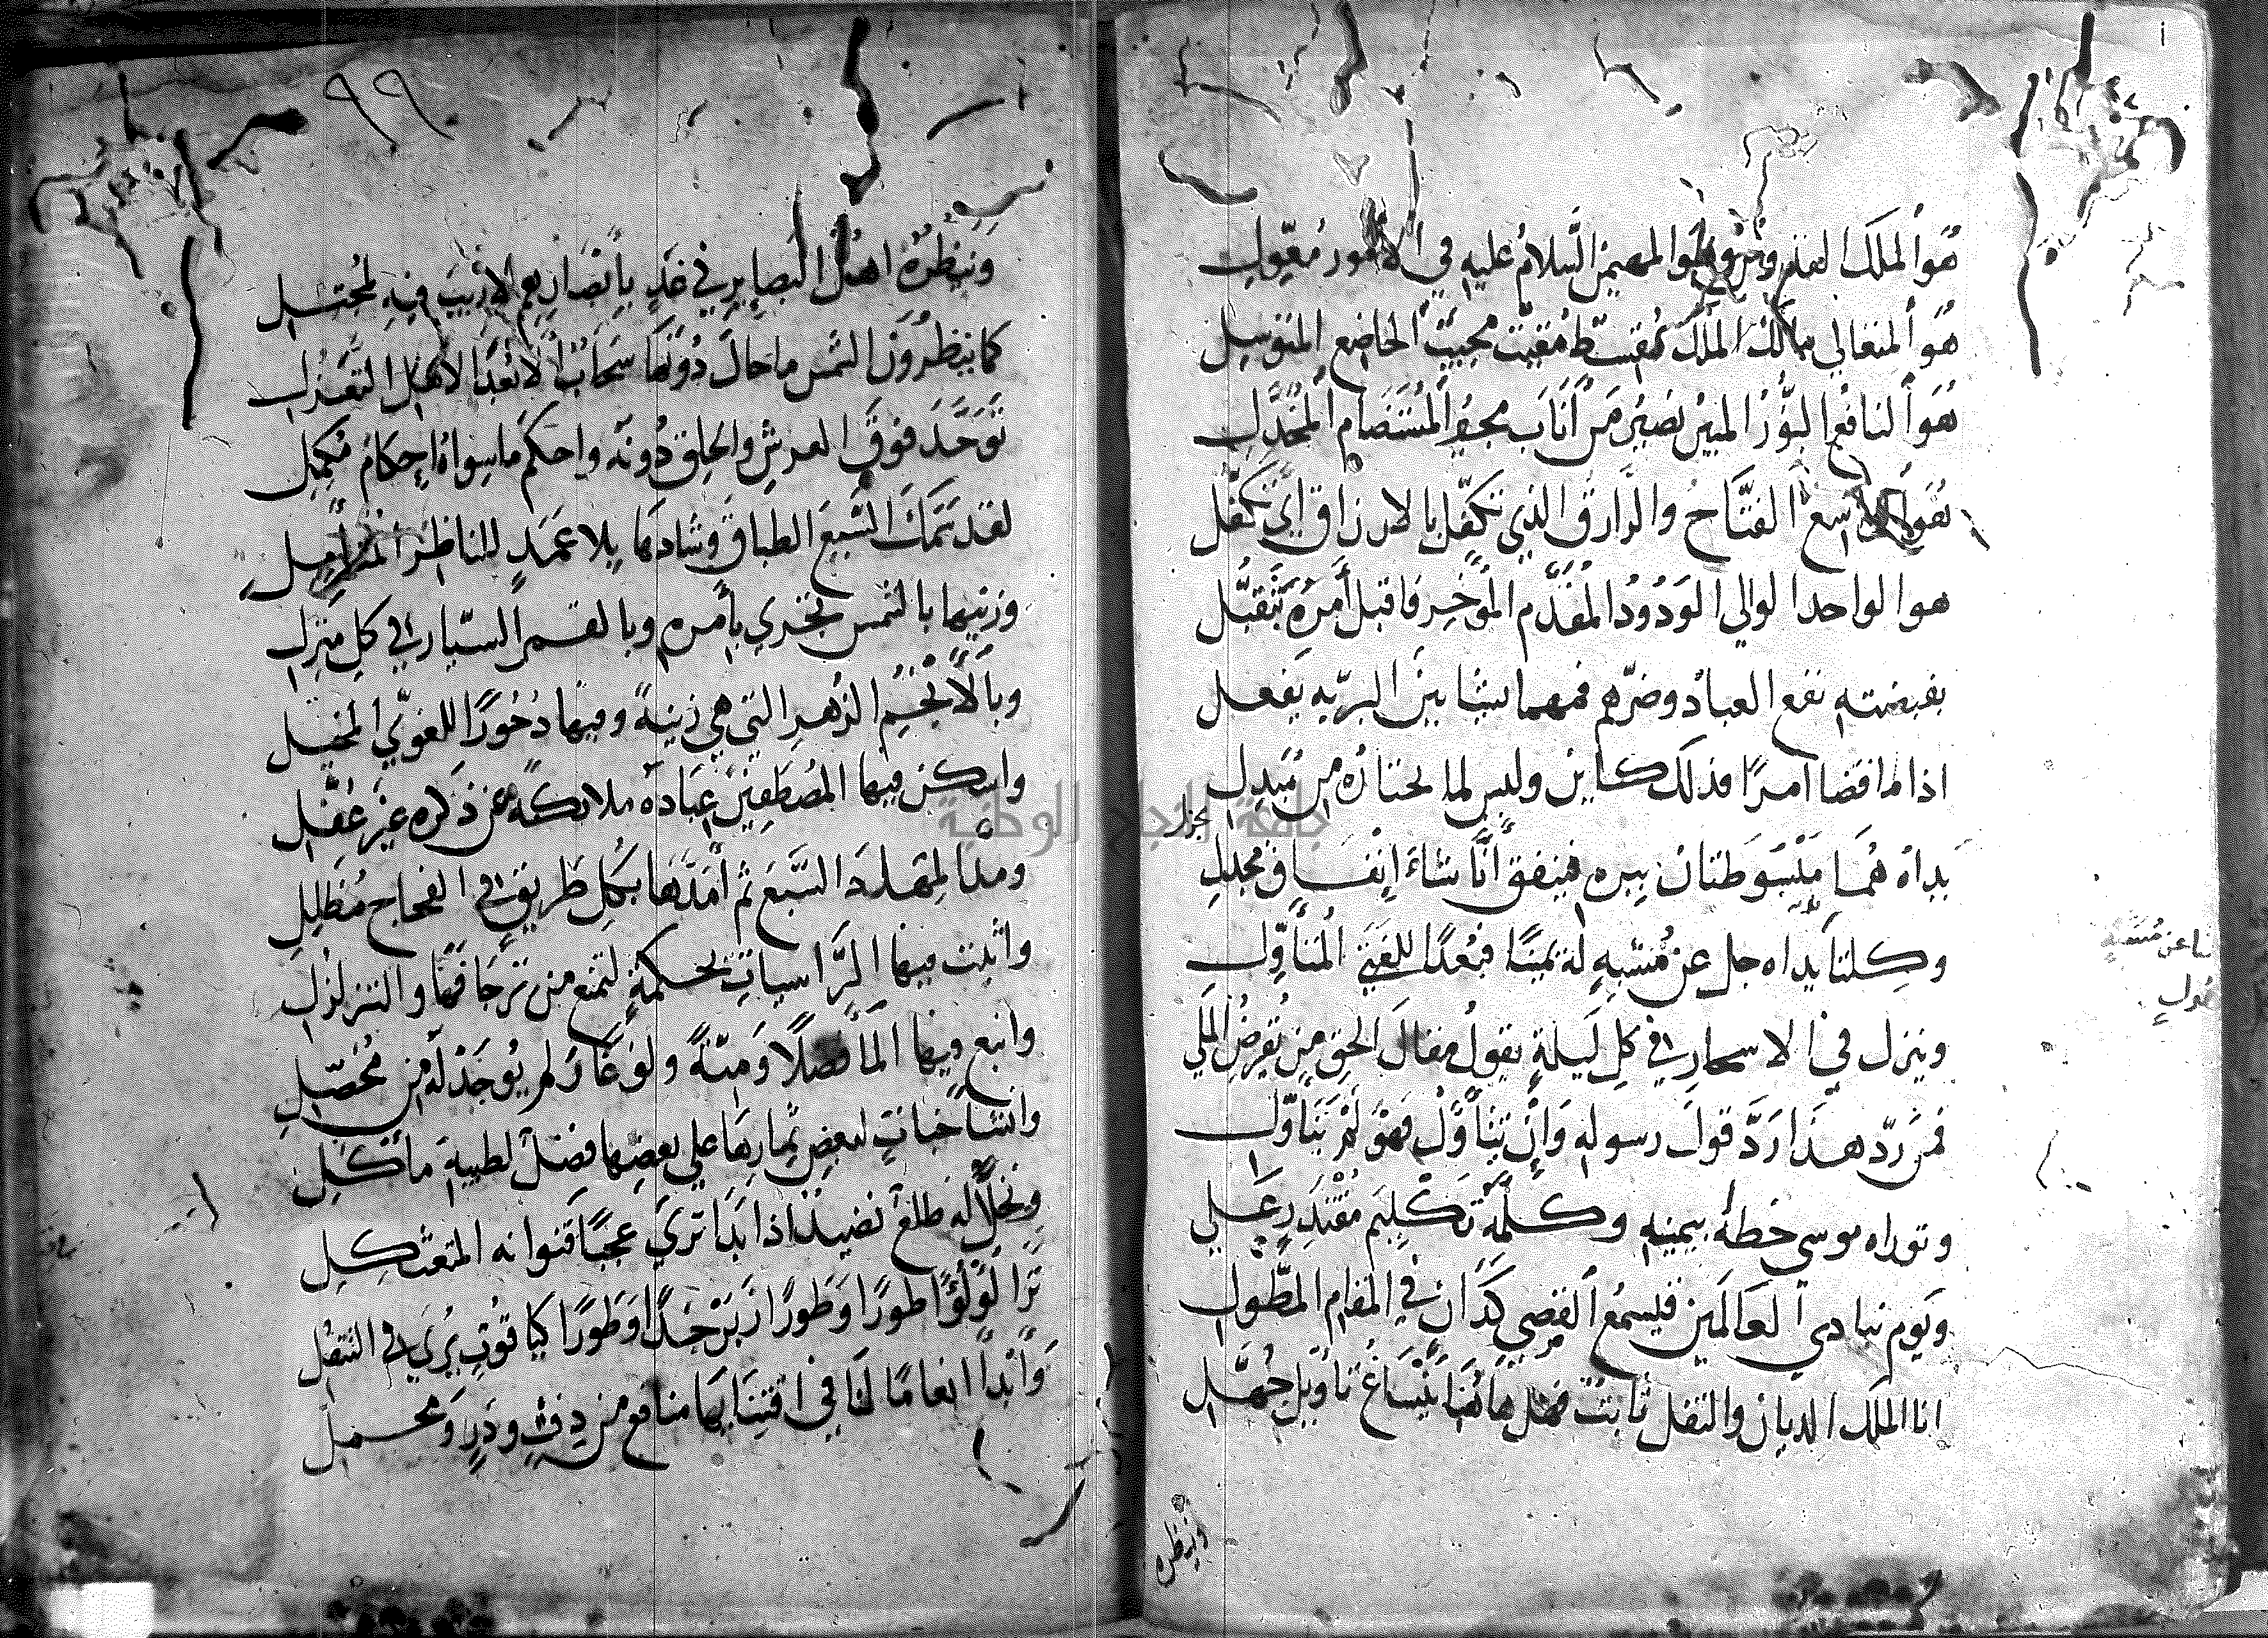 هو الملك المهيمن السلام عليه في الامور معوّل
هُوَ المتعالي مالك الملك مُقسط مُقيت مجيبُ الخاضع المتوسل
هُوَ النافع النُّورُ المبين نصير من أناب مجير المستضام المخذّل
هُوَ الواسع الفتّاح والرازق الذي تكفّل بالارزاق ايَّ تكفّل
هو الواحد الوالي الوَدُودُ المقدّم المُؤخّر فاقبل أمرَه بتقبُّل
بقبضته نفع العباد وضرّهم فمهما يشا بين البريّه يفعل
اذا ما قضا امرًا فذلك كاين وليس لما يختاره من مُبَدِل
يداه هُما مبْسُوطتان ببره فينفق أنّا شاءَ إنفاق مجزل
وكِلتا يداه جل عن مُشبهٍ له يمينًا فبُعدًا للغَبي المُتأوّل
وينزل في الاسحار في كل ليلةٍ يقولُ مقالَ الحق من يُقرضُ المَلي
فمَن ردّ هذا رَدَّ قولَ رسوله وَإن يتأوّل فهوَ لَم يتأوّل
وتوراه موسى خطهُ بيمينه وكلّمهُ تكليم مُقتدرٍ علي
ويَوم ينادي العالمين فيسمعُ القصي كدَانٍ في المقام المطّول
انا الملك الديان والنقل ثابتٌ فهل هاهُنا يَنْسَاغ تاويل جُهّل
وينظره
وَيَنظُرُهُ اهلُ البَصايِر في غدٍ بِأبصَارِهِم لا رَيبَ فيهِ لمُجتلِ
كما ينظرُونَ الشمس ما حالَ دُونَها سَحابٌ ألا بُعدًا لاهل التعَزُّل
تَوَحَّدَ فوقَ العرشِ والخلق دُونَه واحكم ما سواهُ إحكامَ مُكمِل
لقد سَمَكَ السَّبعَ الطباق وشادَها بلا عَمَدٍ للناظر المتأمّل
وزينها بالشمس تجري بأمره وبالقمر السيّار في كل منزل
وبالأنجُم الزُهر التي هي زينةٌ وفيها دُحُورًا للغويّ المخيل
واسكن فيها المُصْطَفِينَ عِبَادَه ملائكةً عن ذكره غيرَ غُفّل
ومدّ المهاد السَّبعَ ثم أمدّها بكل طريقٍ في الفجاج مُظلل
واثبت فيها الرَّاسياتِ بحكمةٍ لتمنع من تَرجَافها والتزلزل
وانبع فيها الماَ فضلاً ومنّةً ولو غارَ لم يُوجَدْ له من مُحَصّل
وانشأ جناتٍ لبعضِ ثمارِها علي بعضِها فضلٌ لطيبةِ مأكل
ونخلاً له طلعٌ نضيدٌ اذا بَدَا تري عجبًا قنوانه المتعثكل
تَرا لُؤلُؤًا طورًا وَطَورًا زَبرْجَدًا وَطَورًا كياقُوتٍ يُرَى في التنقُّل
وَأبْدأ انعامًا لنا في اقتِنَايها منافع من دِفءٍ ودَرٍ ومحمل
٩٩